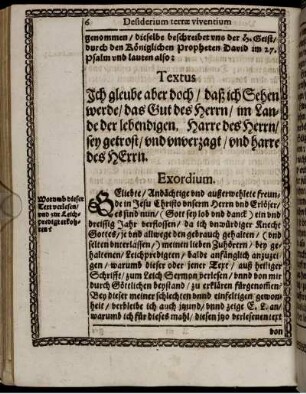 6 Desiderium terræ viventium
genommen / dieselbe beschreibet vns der H. Geist /
durch den Königlichen Propheten David im 27.
Psalm vnd lauten also:
Textus
Ich gleube aber doch / daß ich Sehen
werde / das Gut des Herrn / im Lan-
de der lebendigen. Harre des Herrn /
sey getrost / vnd vnverzagt / vnd harre
des HErrn.
Exordium.
Worumb dieser
Text verlesen /
vnd zur Leich-
predigt erkoh-
ren?
GEliebte / Andächtige vnd außerwehlete freun-
de in Jesu Christo vnserm Herrn vnd Erlöser /
es sind nun / (Gott sey lob vnd danck) ein vnd
dreissig Jahr verflossen / da ich vnwürdiger Knecht
Gottes / je vnd allwege den gebrauch gehalten / (vnd
selten vnterlassen /) meinen lieben Zuhörern / bey ge-
haltenen / Leichpredigten / balde anfänglich anzuzei-
gen / warumb dieser oder jener Text / auß heiliger
Schrifft / zum Leich Sermon verlesen / vnnd von mir
durch Göttlichen beystand / zu erklären fürgenommen /
Bey dieser meiner schlechten vnnd einfeltigen gewon-
heit / verbleibe ich auch jtzund / vnnd zeige E. L. an /
warumb ich für dieses mahl / diesen jtzo verlesenen text
von